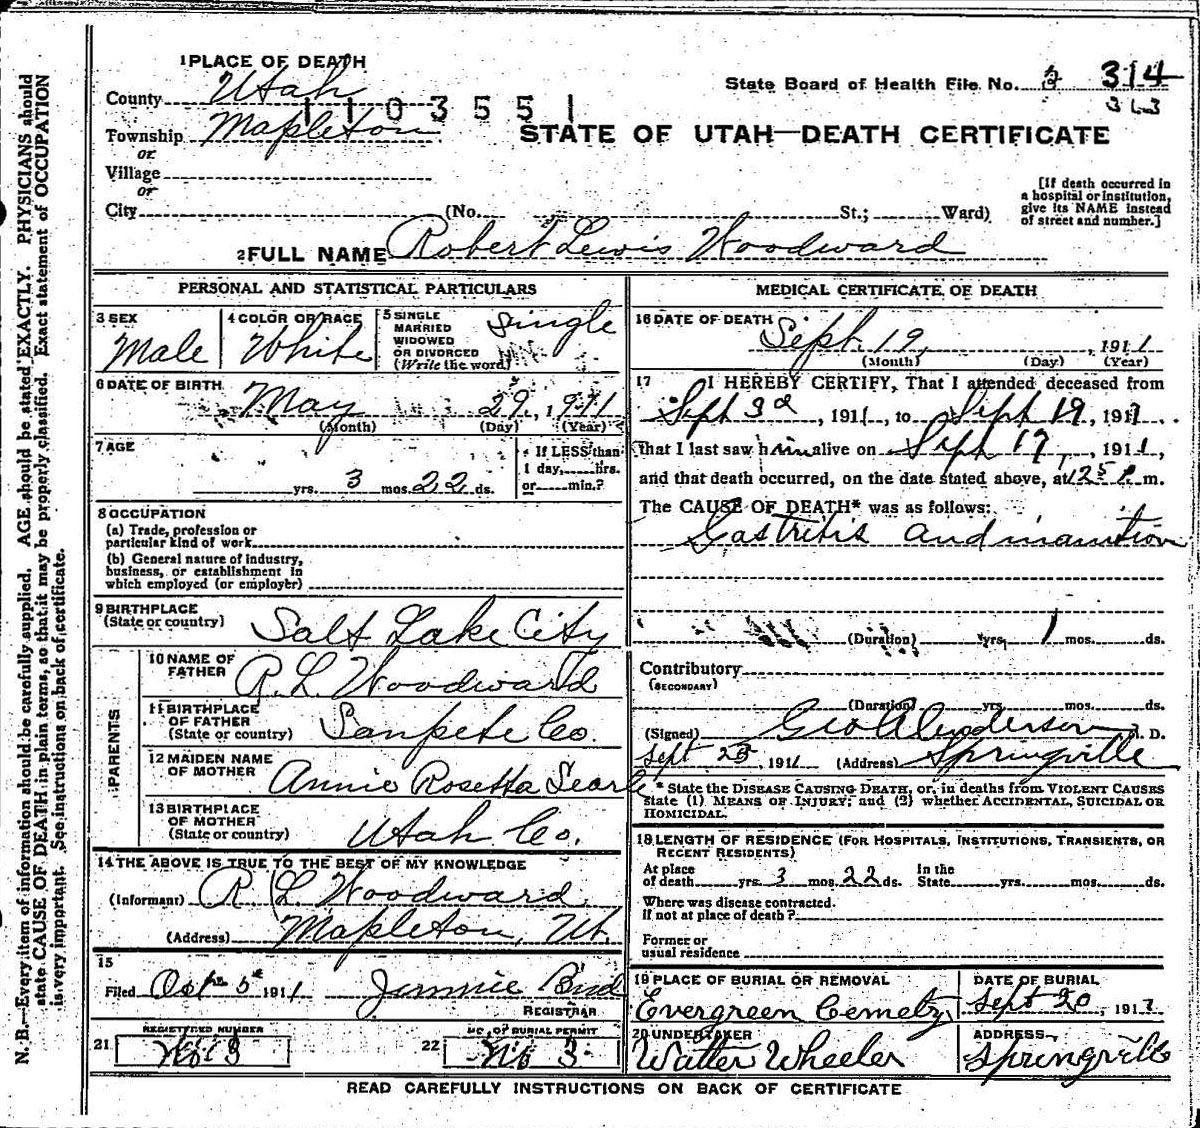 1 PLACE OF DEATH
County Utah
110355 1
State Board of Health File No. 3 314
313
Township Mapleton
STATE OF UTAH—DEATH CERTIFICATE
or
Village
or
City (No. St.; Ward)
[If death occurred in
a hospital or institution,
give its NAME instead
of street and number.]
2 FULL NAME Robert Lewis Woodward
PERSONAL AND STATISTICAL PARTICULARS
3 SEX
Male
4 COLOR OR RACE
White
5 SINGLE
MARRIED
WIDOWED
OR DIVORCED
(Write the word)
Single
6 DATE OF BIRTH
May 29, 1911
(Month) (Day) (Year)
7 AGE
yrs. 3 mos. 22 ds.
If LESS than
1 day, hrs.
or min.?
8 OCCUPATION
(a) Trade, profession or
particular kind of work
(b) General nature of industry,
business, or establishment in
which employed (or employer)
9 BIRTHPLACE
(State or country) Salt Lake City
PARENTS
10 NAME OF
FATHER R. L. Woodward
11 BIRTHPLACE
OF FATHER
(State or country) Sanpete Co.
12 MAIDEN NAME
OF MOTHER Annie Rosetta Searle
13 BIRTHPLACE
OF MOTHER
(State or country) Utah Co.
14 THE ABOVE IS TRUE TO THE BEST OF MY KNOWLEDGE
(Informant) R. L. Woodward
(Address) Mapleton, Ut.
15
Filed Oct 5th 1911 Jimmie Bird
REGISTRAR
21 REGISTERED NUMBER
No 3
22 NO. OF BURIAL PERMIT
No 3
MEDICAL CERTIFICATE OF DEATH
16 DATE OF DEATH
Sept. 19, , 1911
(Month) (Day) (Year)
17 I HEREBY CERTIFY, That I attended deceased from
Sept 3d, 1911, to Sept 19, 1911.
that I last saw him alive on Sept 17, , 1911,
and that death occurred, on the date stated above, at 125 P. m.
The CAUSE OF DEATH* was as follows:
Gastritis and inanition
(Duration) yrs. 1 mos. ds.
Contributory
(SECONDARY)
(Duration) yrs. mos. ds.
(Signed) Geo A Anderson M. D.
Sept 23, 1911 (Address) Springville
* State the DISEASE CAUSING DEATH, or, in deaths from VIOLENT CAUSES
state (1) MEANS OF INJURY; and (2) whether ACCIDENTAL, SUICIDAL OR
HOMICIDAL.
18 LENGTH OF RESIDENCE (FOR HOSPITALS, INSTITUTIONS, TRANSIENTS, OR
RECENT RESIDENTS)
At place
of death yrs. 3 mos. 22 ds.
In the
State yrs. mos. ds.
Where was disease contracted.
If not at place of death?
Former or
usual residence
19 PLACE OF BURIAL OR REMOVAL
Evergreen Cemetry
DATE OF BURIAL
Sept 20, 1911
20 UNDERTAKER
Walter Wheeler
ADDRESS
Springville
READ CAREFULLY INSTRUCTIONS ON BACK OF CERTIFICATE
N. B.—Every item of information should be carefully supplied. AGE should be stated EXACTLY. PHYSICIANS should
state CAUSE OF DEATH in plain terms, so that it may be properly classified. Exact statement of OCCUPATION
is very important. See instructions on back of certificate.